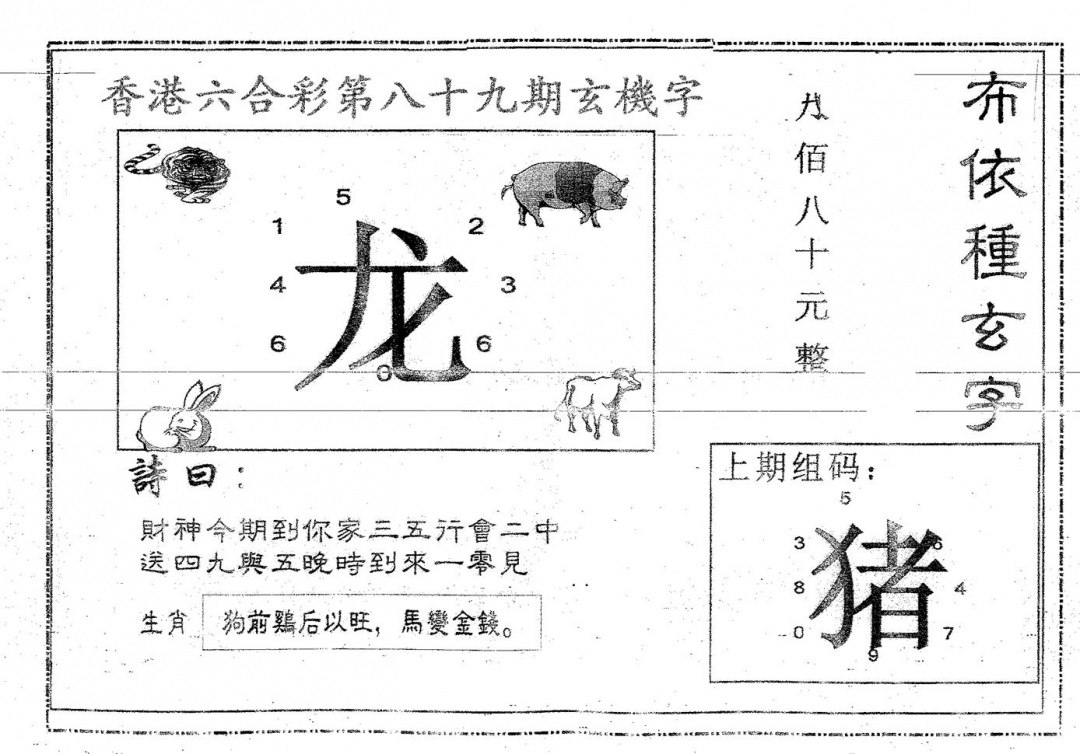 香港六合彩第八十九期玄機字
布依種玄字
佰八十元整
5
1
2
龙
4
3
6
6
0
詩曰：
財神今期到你家三五行會二中
送四九與五晚時到來一零見
生肖
狗前鷄后以旺，馬變金錢。
上期组码：
5
3
6
猪
8
4
0
7
9